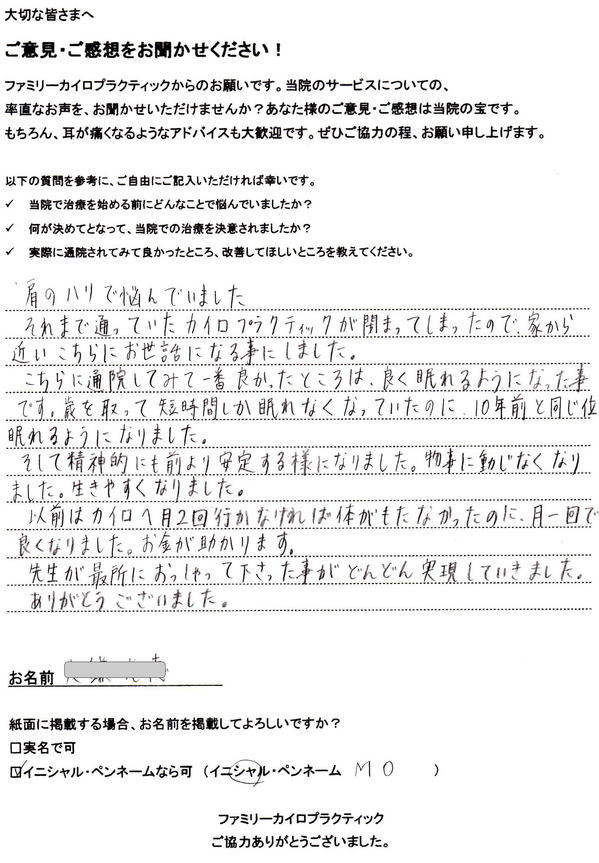 大切な皆さまへ
ご意見・ご感想をお聞かせください！
ファミリーカイロプラクティックからのお願いです。当院のサービスについての、
率直なお声を、お聞かせいただけませんか？あなた様のご意見・ご感想は当院の宝です。
もちろん、耳が痛くなるようなアドバイスも大歓迎です。ぜひご協力の程、お願い申し上げます。
以下の質問を参考に、ご自由にご記入いただければ幸いです。
✓ 当院で治療を始める前にどんなことで悩んでいましたか？
✓ 何が決めてとなって、当院での治療を決意されましたか？
✓ 実際に通院されてみて良かったところ、改善してほしいところを教えてください。
肩のハリで悩んでいました
それまで通っていたカイロプラクティックが閉まってしまったので、家から
近いこちらにお世話になる事にしました。
こちらに通院してみて一番良かったところは、良く眠れるようになった事
です。歳を取って短時間しか眠れなくなっていたのに、10年前と同じ位
眠れるようになりました。
そして精神的にも前より安定する様になりました。物事に動じなくなり
ました。生きやすくなりました。
以前はカイロへ月2回行かなければ体がもたなかったのに、月一回で
良くなりました。お金が助かります。
先生が最所におっしゃって下さった事がどんどん実現していきました。
ありがとうございました。
お名前
紙面に掲載する場合、お名前を掲載してよろしいですか？
□実名で可
☑イニシャル・ペンネームなら可 （イニシャル・ペンネーム MO ）
ファミリーカイロプラクティック
ご協力ありがとうございました。